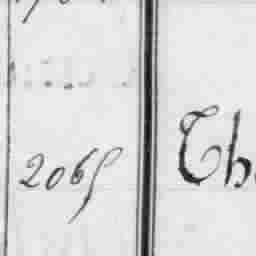 2065 Th